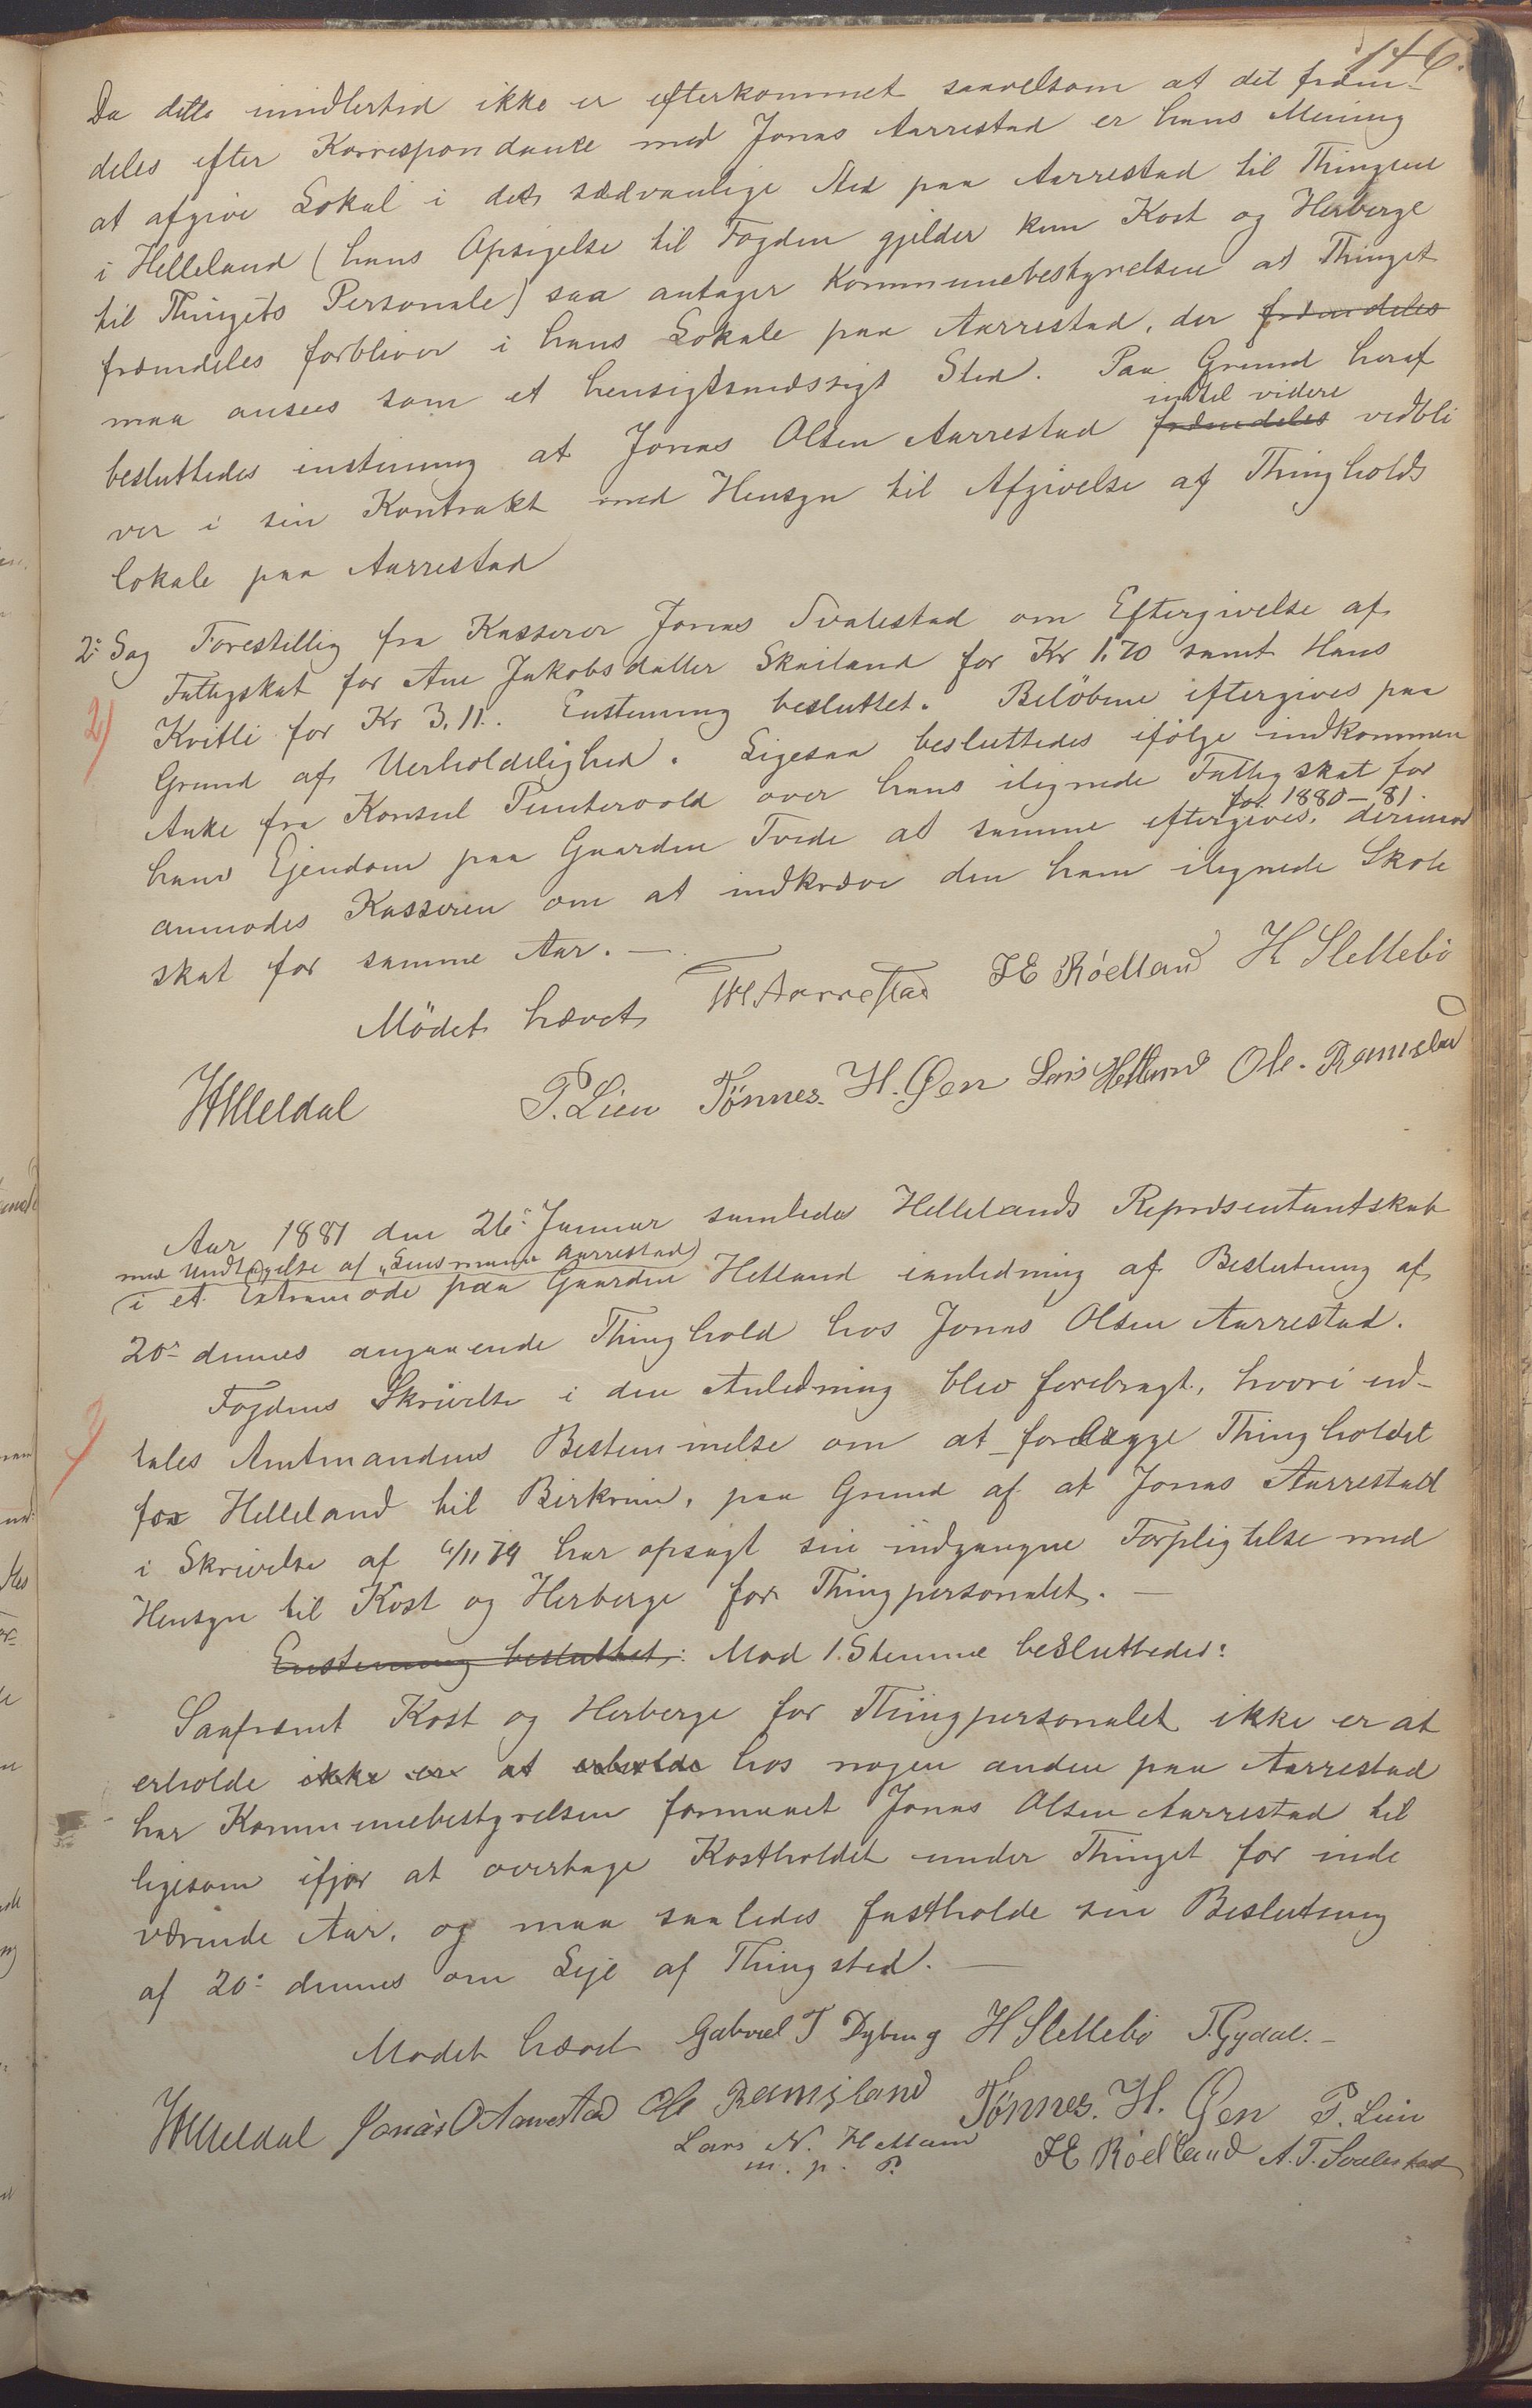 146.
Da dette imidlertid ikke er efterkommet saavelsom at det frem-
deles efter Korrespondanse med Jonas Aarrestad er hans Mening
at afgive Lokal i det sædvanlige Sted paa Aarrestad til Thingene
i Helleland (hans Opsigelse til Fogden gjelder kun Kost og Herberge
til Thingets Personale) saa antager Kommunebestyrelsen at Thinget
fremdeles forbliver i hans Lokale paa Aarrestad, der fremdeles
maa ansees som et hensigtsmæssigt Sted. Paa Grund heraf
indtil videre
besluttedes enstemmig at Jonas Olsen Aarrestad fremdeles vedbli
ver i sin Kontrakt med Hensyn til Afgivelse af Thingholds
lokale paa Aarrestad
2: Sag Forestillig fra Kasserer Jonas Svalestad om Eftergivelse af
Fattigskat for Ane Jakobsdatter Skailand for Kr 1.70 samt Hans
2)
Kvitli for Kr 3,11. Enstemmig besluttet. Beløbene eftergives paa
Grund af Uerholdelighed. Ligesaa besluttedes ifølge indkommen
Anke fra Konsul Puntervold over hans ilignede Fattigskat for
for 1880-81.
hans Ejendom paa Gaarden Tvede at samme eftergives, derimod
anmodes Kasseren om at indkræve den ham ilignede Skole
skat for samme Aar. —
Mödet hævet TH Aarrestad JE Röelland H Slettebö
P. Lien Tönnes. H. Øen Lars Hetland Ole. Ramsland
Aar 1881 den 26: Januar samledes Hellelands Repræsentantskab
med Undtagelse af "Lensmand Aarrestad
i et Extramöde paa Gaarden Hetland ianledning af Beslutning af
20: dennes angaaende Thinghold hos Jonas Olsen Aarrestad.
Fogdens Skrivelse i den Anledning blev forebragt, hvori ud-
tales Amtmandens Bestemmelse om at forlægge Thingholdet
for Helleland til Birkrim, paa Grund af at Jonas Aarrestad
i Skrivelse af 4/11 79 har opsagt sin indgangne Forpligtelse med
Hensyn til Kost og Herberge for Thingpersonalet. —
Enstemmig besluttet: Mod 1 Stemme besluttedes:
Saafremt Kost og Herberge for Thingpersonalet ikke er at
erholde ikke er at erholde hos nogen anden paa Aarrestad
har Kommunebestyrelsen formaaet Jonas Olsen Aarrestad til
ligesom ifjor at overtage Kostholdet under Thinget for inde
værende Aar, og maa saaledes fastholde sin Beslutning
af 20: dennes om Leje af Thingsted. —
Mödet hævet Gabriel T Dybing H Slettebö T. Gydal. -
Jonas O Aarrestad Ole Ramsland Tönnes. H. Øen P. Lien
Lars N. Hetland JE Röelland A. T. Svalestad
m. p. P.